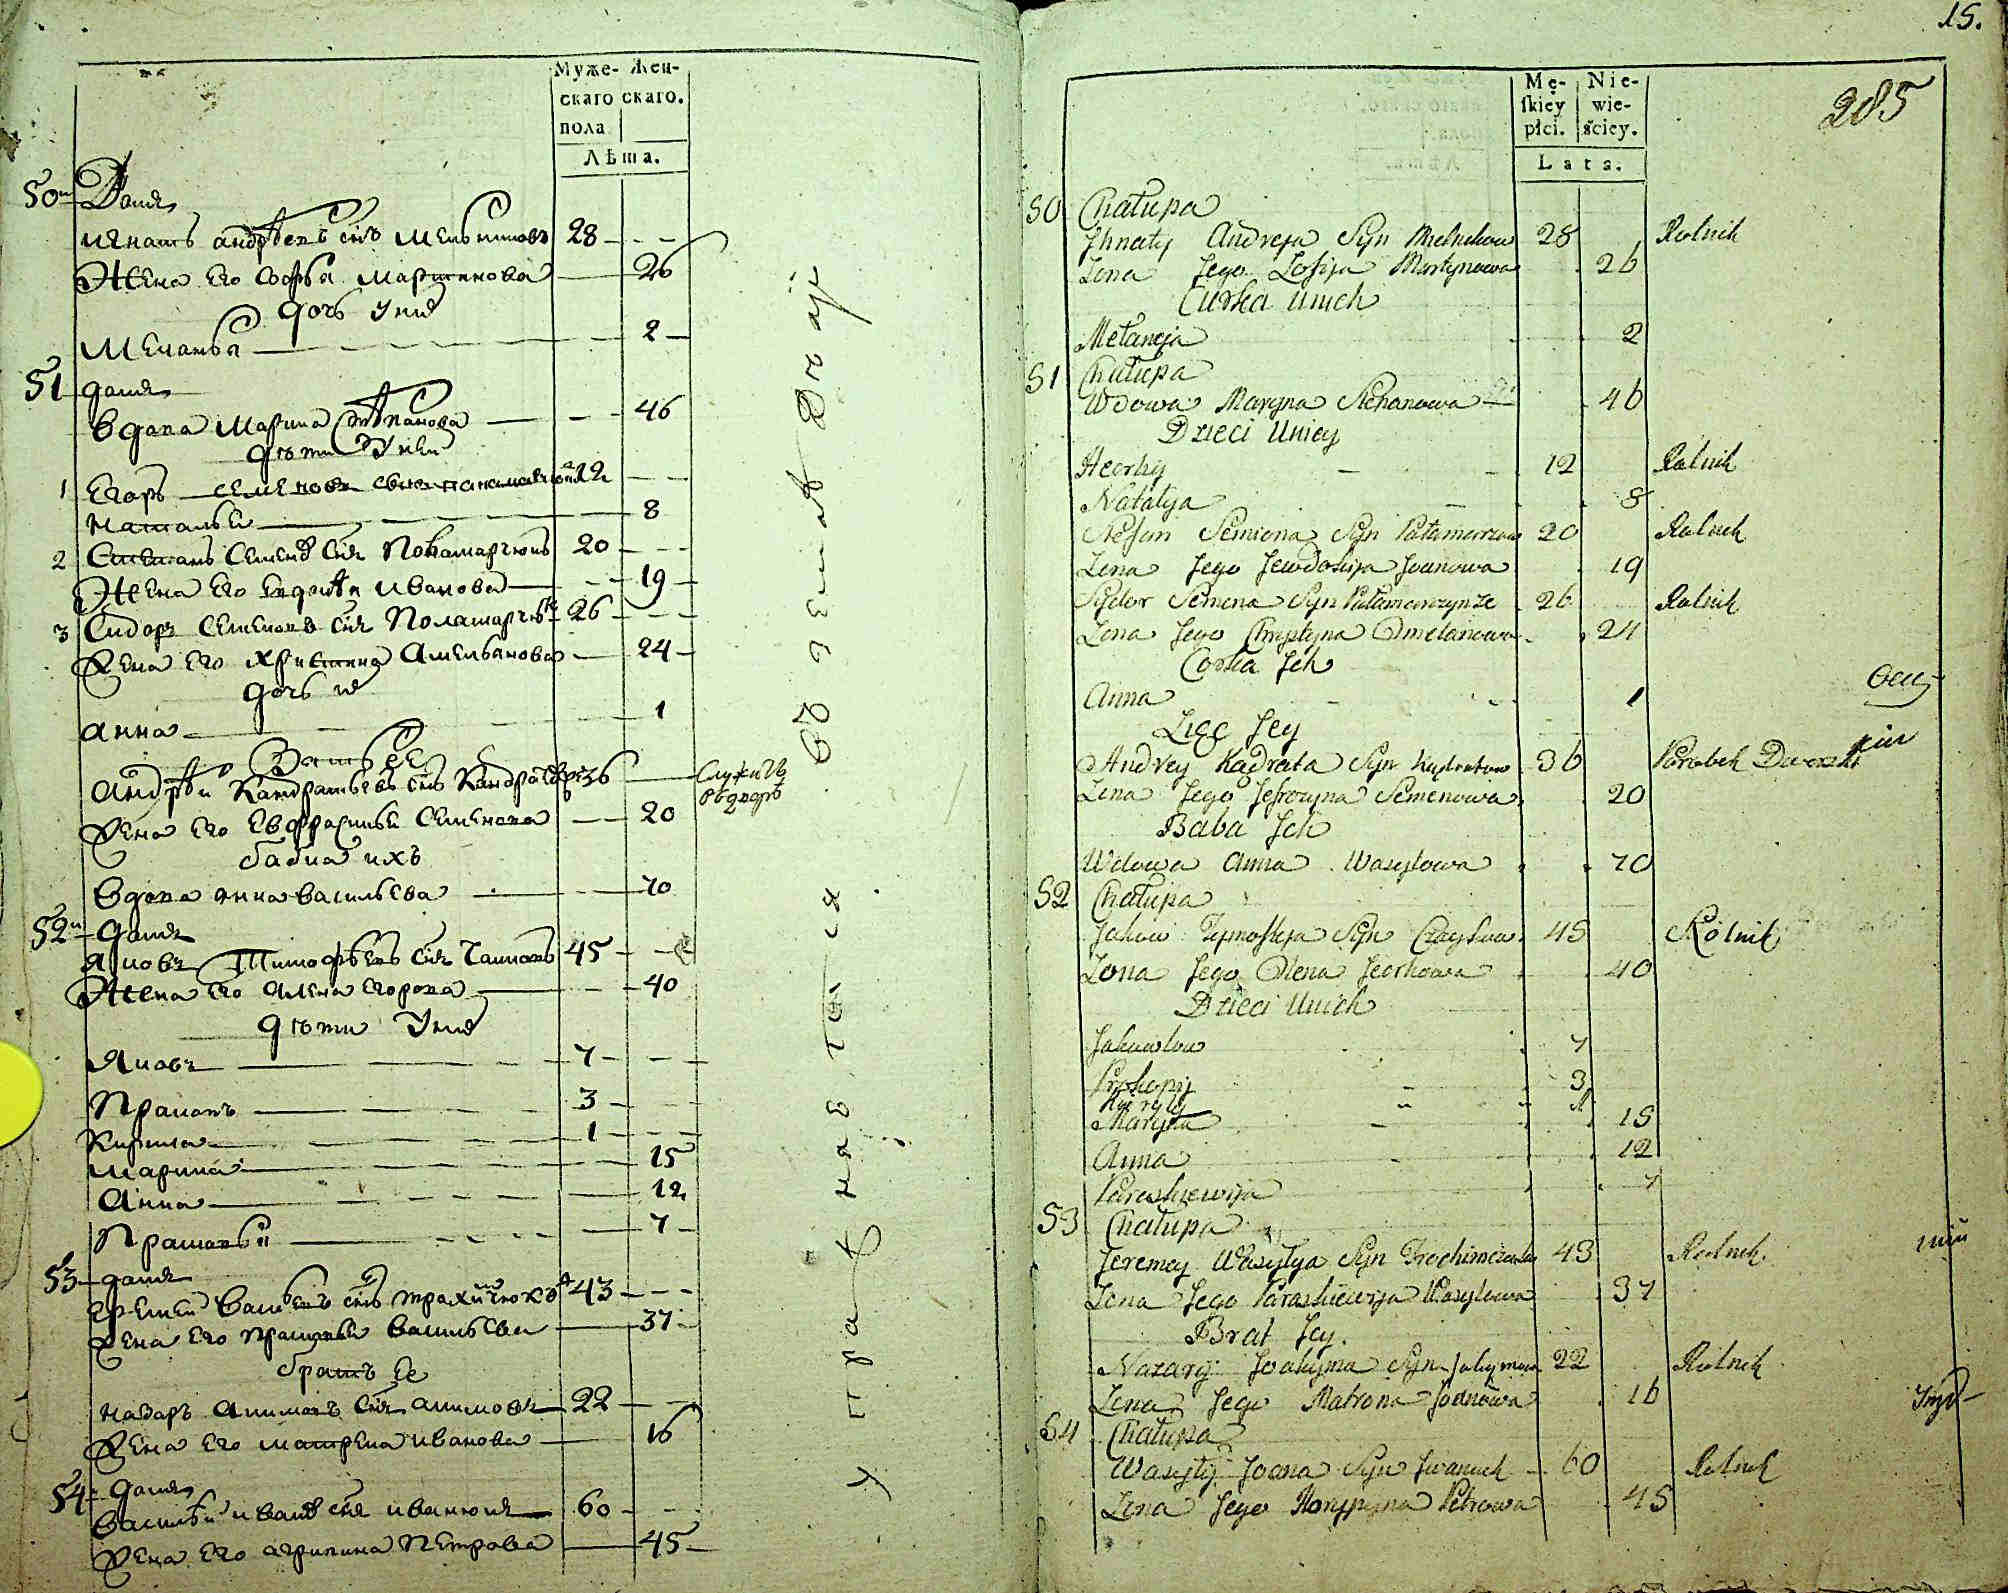 Муже- Жен-
скаго скаго.
пола
Лѣта.
50 Домъ
Игнатъ Андрѣевъ снъ Мельниковъ 28
Жена его Софья Мартинова 26
дочь у них
Меланья 2
51 домъ
вдова Марина Степанова 46
дѣти у неи
1 Егоръ Семеновъ 12
Наталья 8
2 Степанъ Семенов снъ 20
Жена его Иванова 19
3 Сидоръ Семеновъ снъ 26
Жена его Христина Амельянова 24
дочь их
Анна 1
Зять ее
Андрѣй Кандратьевъ снъ 36 Служитъ
въ дворѣ
Жена его Евфросинья Семенова 20
бабка ихъ
вдова Анна Васильева 70
52 домъ
Яковъ Тимофѣевъ снъ 45
Жена его Алена Егорова 40
дѣти у них
Яковъ 7
Пракопъ 3
Кирила 1
Марина 15
Анна 12
Прасковья 7
53 домъ
Еремей Васильевъ снъ 43
Жена его Прасковья Васильева 37
братъ ее
Назаръ Акимовъ снъ Акимовъ 22
Жена его Матрена Иванова 16
54 домъ
Василей Иванов снъ Иванюкъ 60
Жена его Агрипина Петрова 45
Упражняется въ землъ
15.
285
Mę- Nie-
ſkiey wie-
płci. ściey.
Lata.
50 Chałupa
Jhnaty Andreja Syn Melnikow 28 Rolnik
Zona Jego Zofija Martynowa 26
Curka Unich
Mełanja 2
51 Chałupa
Wdowa Maryna Stepanowa 46
Dzieci Uniey
Heorhy 12 Rolnik
Natalya 8
Stefan Semiona Syn 20 Rolnik
Zona Jego Jewdokija Joanowa 19
Sydor Semena Syn 26 Rolnik
Zona Jego Chrystyna Omelanowa 24
Corka Jch
Anna 1
Zięć Jey
Andrey Kądrata Syn Kądratow 36 Parobek Dworski
Zona Jego Jefrozyna Semenowa 20
Baba Jch
Wdowa Anna Wasylowa 70
52 Chałupa
Jakow Tymofieja Syn 45 Rolnik
Zona Jego Olena Jeorhowa 40
Dzieci Unich
Jakowlow 7
Prokopij 3
Kiryły 1
Maryna 15
Anna 12
Paraskiewija 7
53 Chałupa
Jeremey Wasylya Syn 43 Rolnik
Zona Jego Paraskiewija Wasylowa 37
Brat Jey.
Nazary Joakyma Syn Jakymow 22 Rolnik
Zona Jego Matrona Joanowa 16
54 Chałupa
Wasyly Joana Syn Jwaniuk 60 Rolnik
Zona Jego Petrowa 45